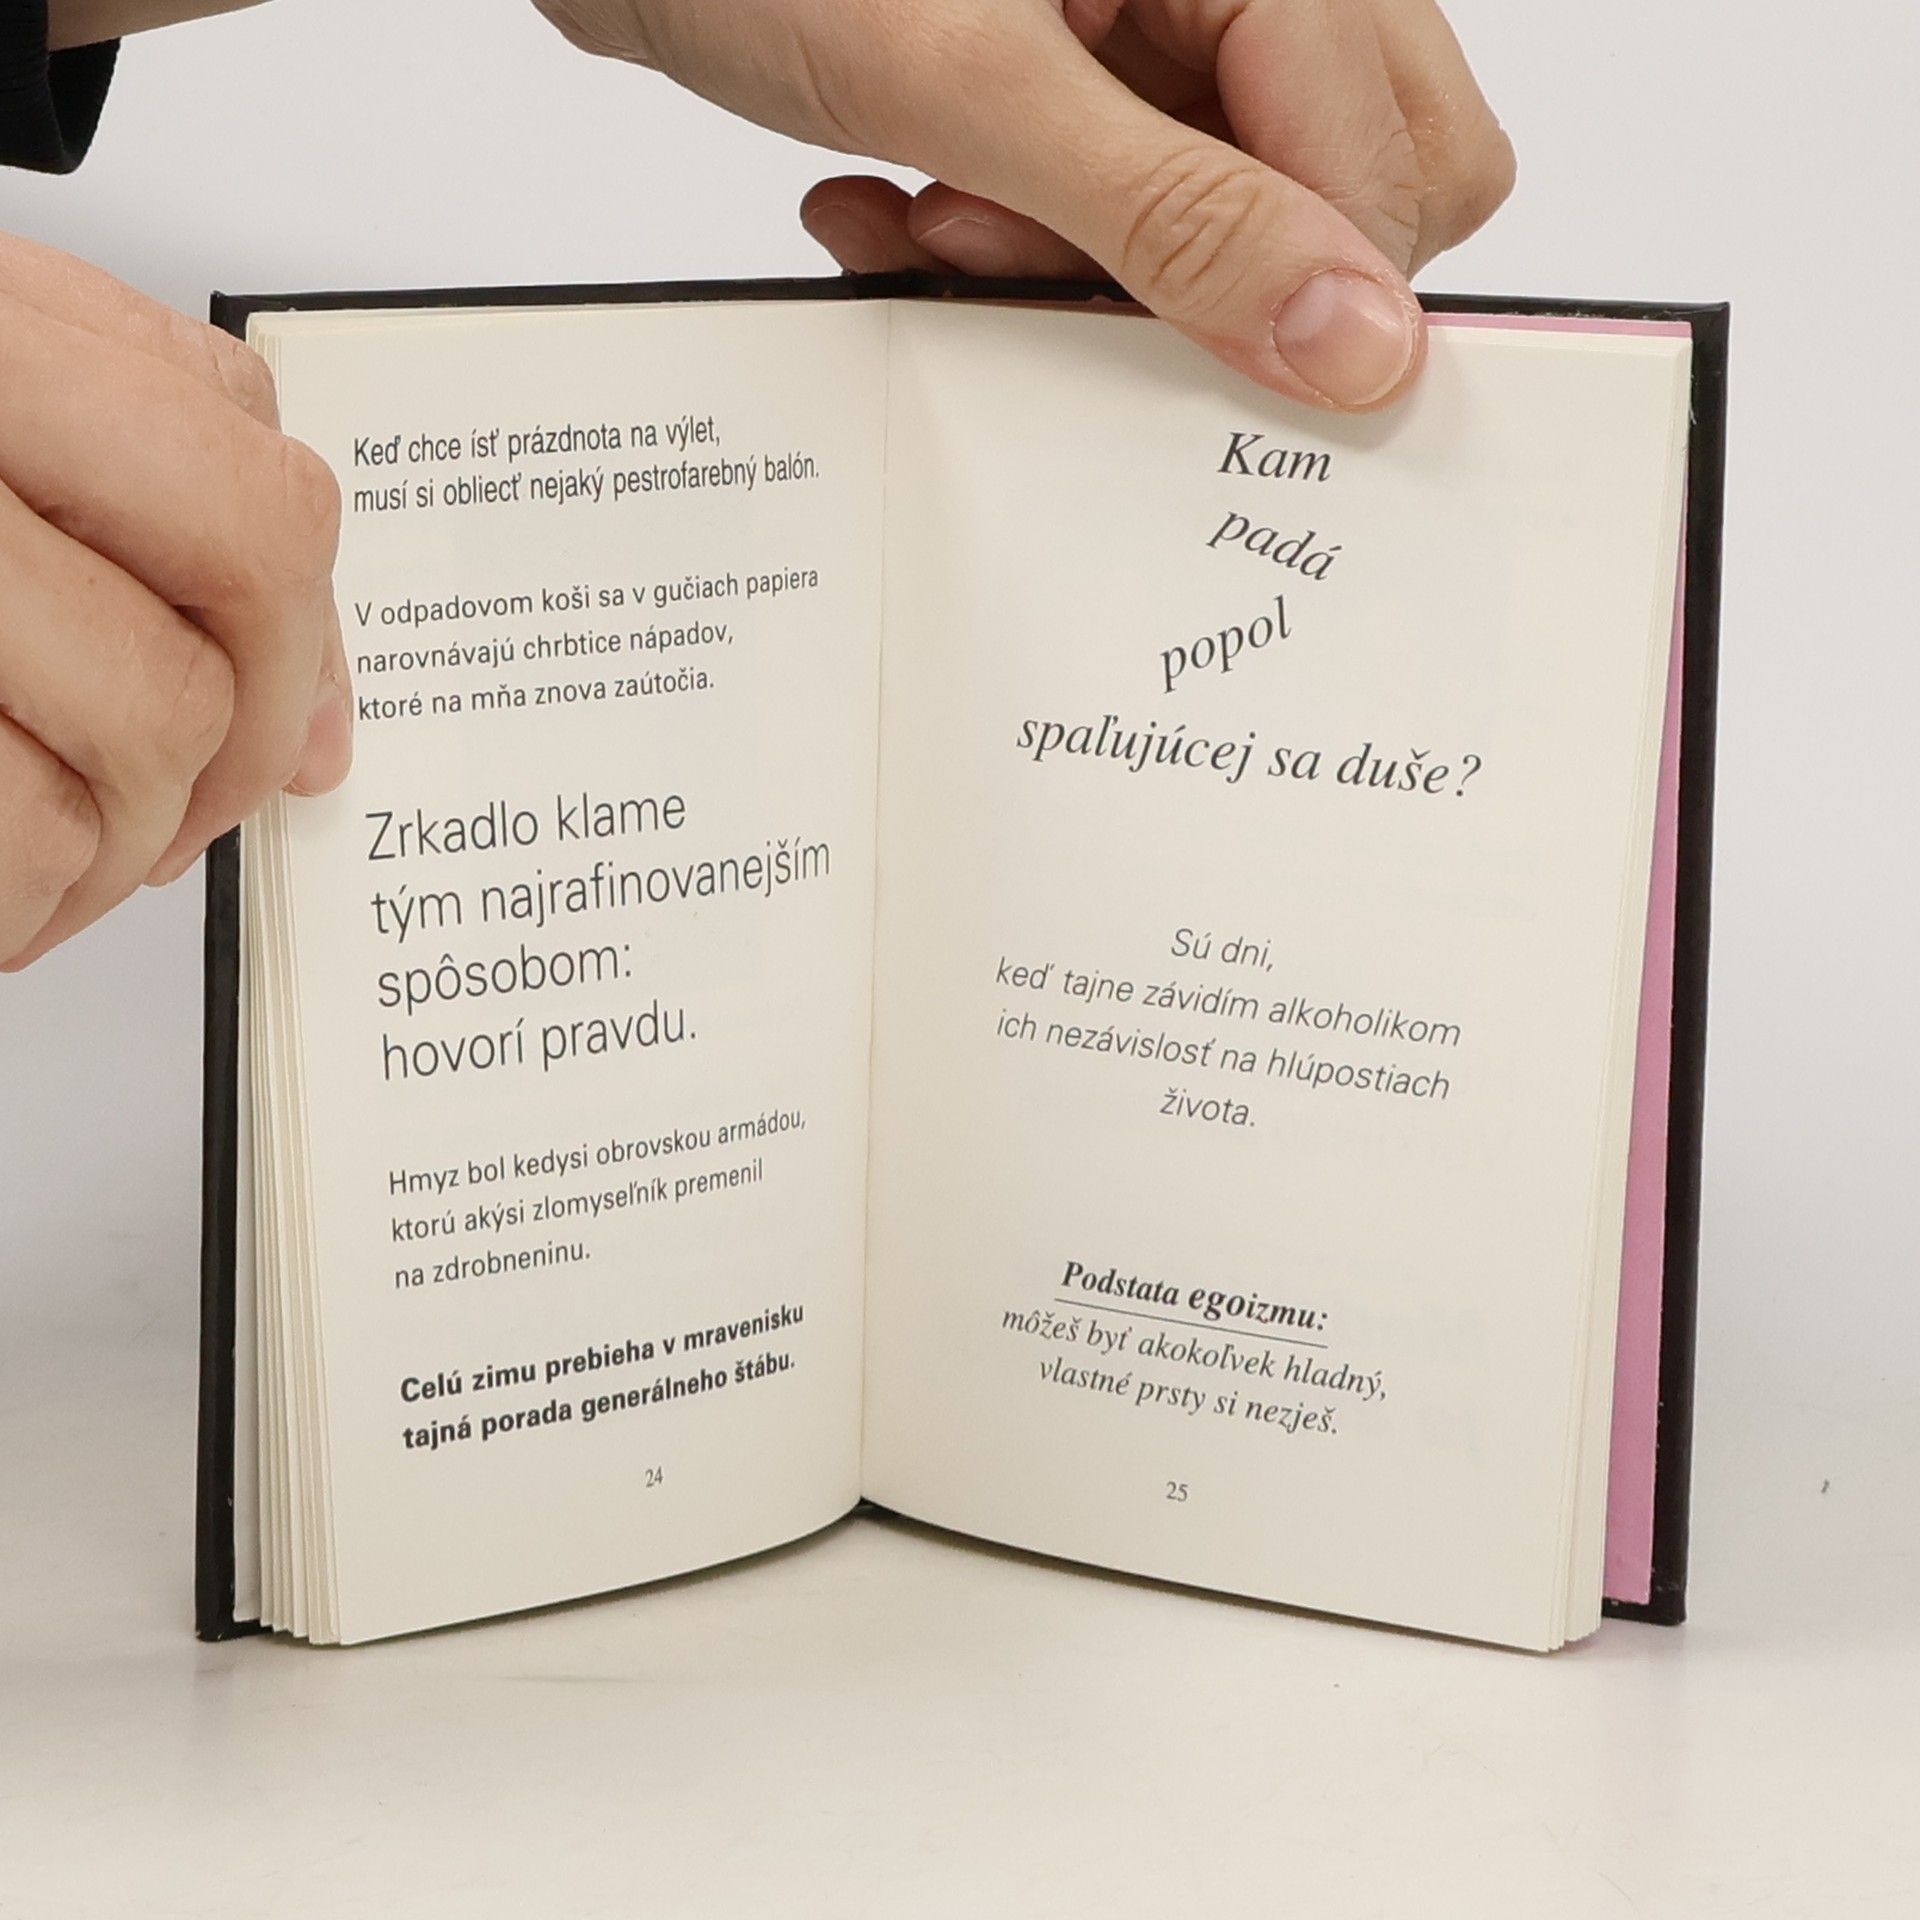 Keď chce ísť prázdnota na výlet,
musí si obliecť nejaký pestrofarebný balón.
V odpadovom koši sa v gučiach papiera
narovnávajú chrbtice nápadov,
ktoré na mňa znova zaútočia.
Zrkadlo klame
tým najrafinovanejším
spôsobom:
hovorí pravdu.
Hmyz bol kedysi obrovskou armádou,
ktorú akýsi zlomyseľník premenil
na zdrobneninu.
Celú zimu prebieha v mravenisku
tajná porada generálneho štábu.
24
Kam
padá
popol
spaľujúcej sa duše?
Sú dni,
keď tajne závidím alkoholikom
ich nezávislosť na hlúpostiach
života.
Podstata egoizmu:
môžeš byť akokoľvek hladný,
vlastné prsty si nezješ.
25